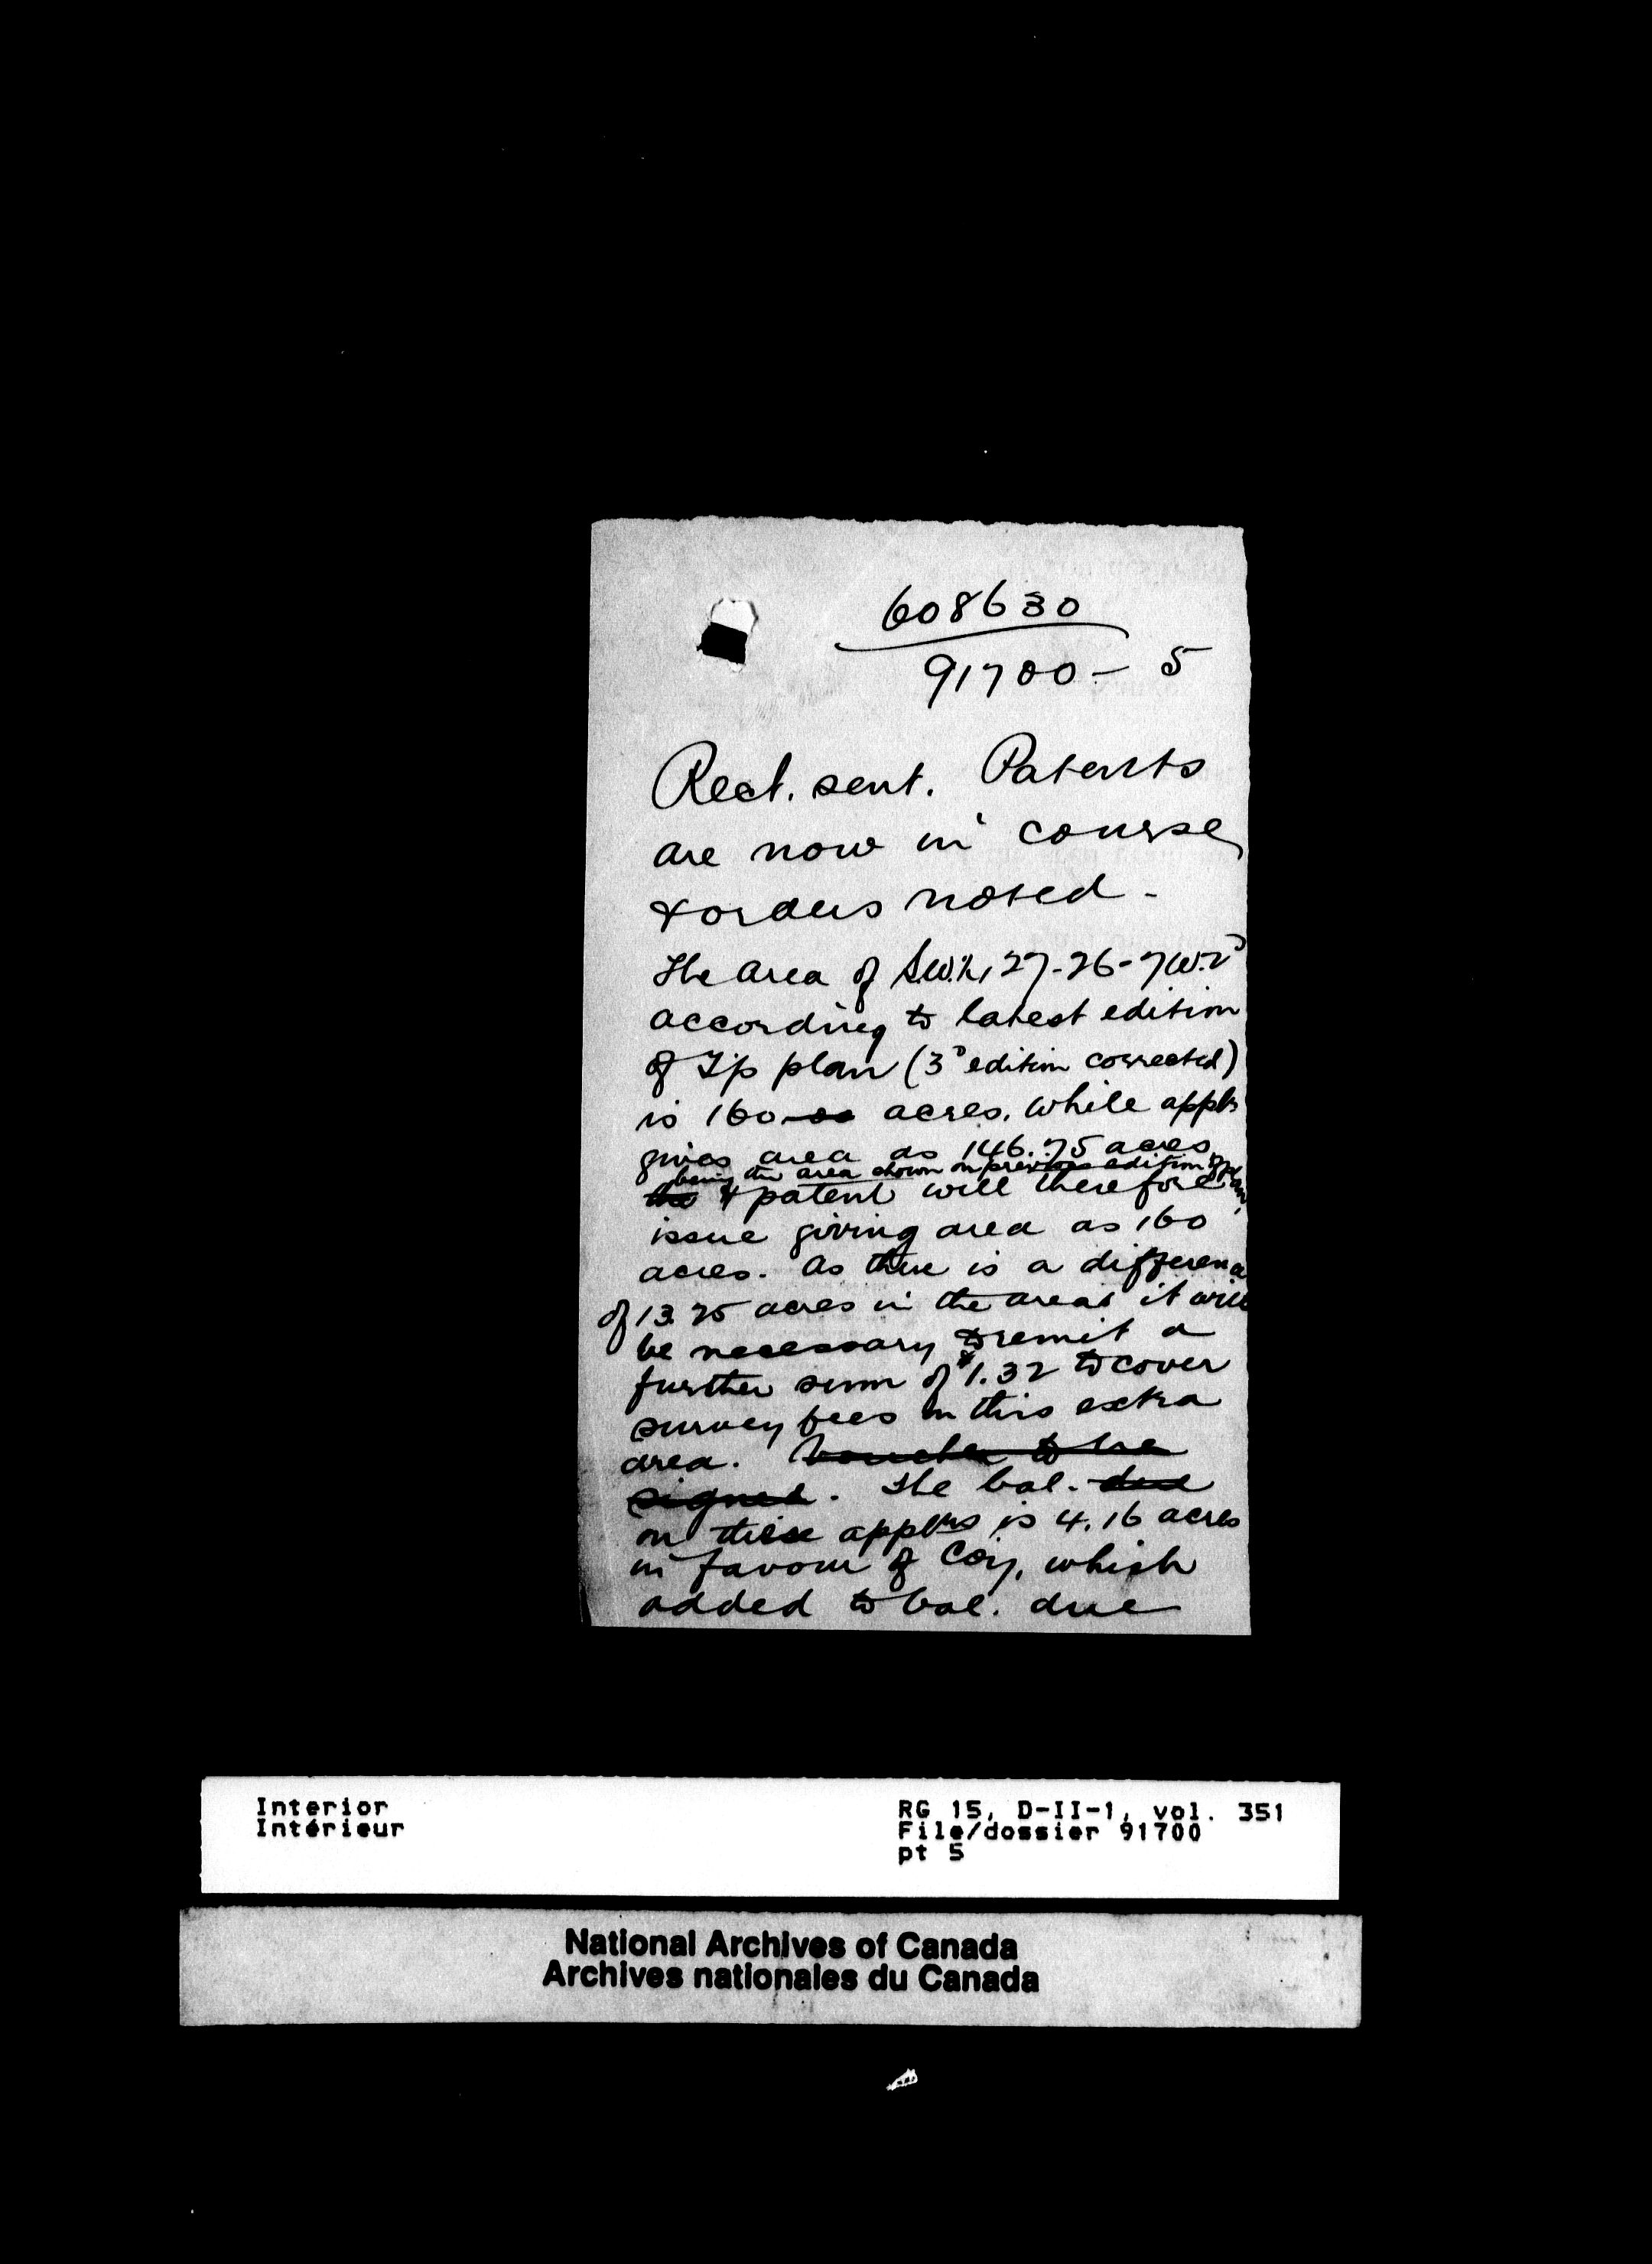 608630
91700 - 5
Rect. sent. Patents
are now in course
& orders noted -
The area of S.W.¼, 27-26-7 W.2ᴰ
according to latest edition
of Tp plan (3ᴰ edition corrected)
is 160 acres, while appln
gives area as 146.75 acres,
being the area shown on previous edition of plan,
the & patent will therefore
issue giving area as 160
acres. As there is a difference
of 13.25 acres in the areas it will
be necessary to remit a
further sum of $1.32 to cover
survey fees on this extra
area. Voucher to be
signed. The bal. due
on these applns is 4.16 acres
in favour of Coy, which
added to bal. due
Interior
Intérieur
RG 15, D-II-1, vol. 351
File/dossier 91700
pt 5
National Archives of Canada
Archives nationales du Canada